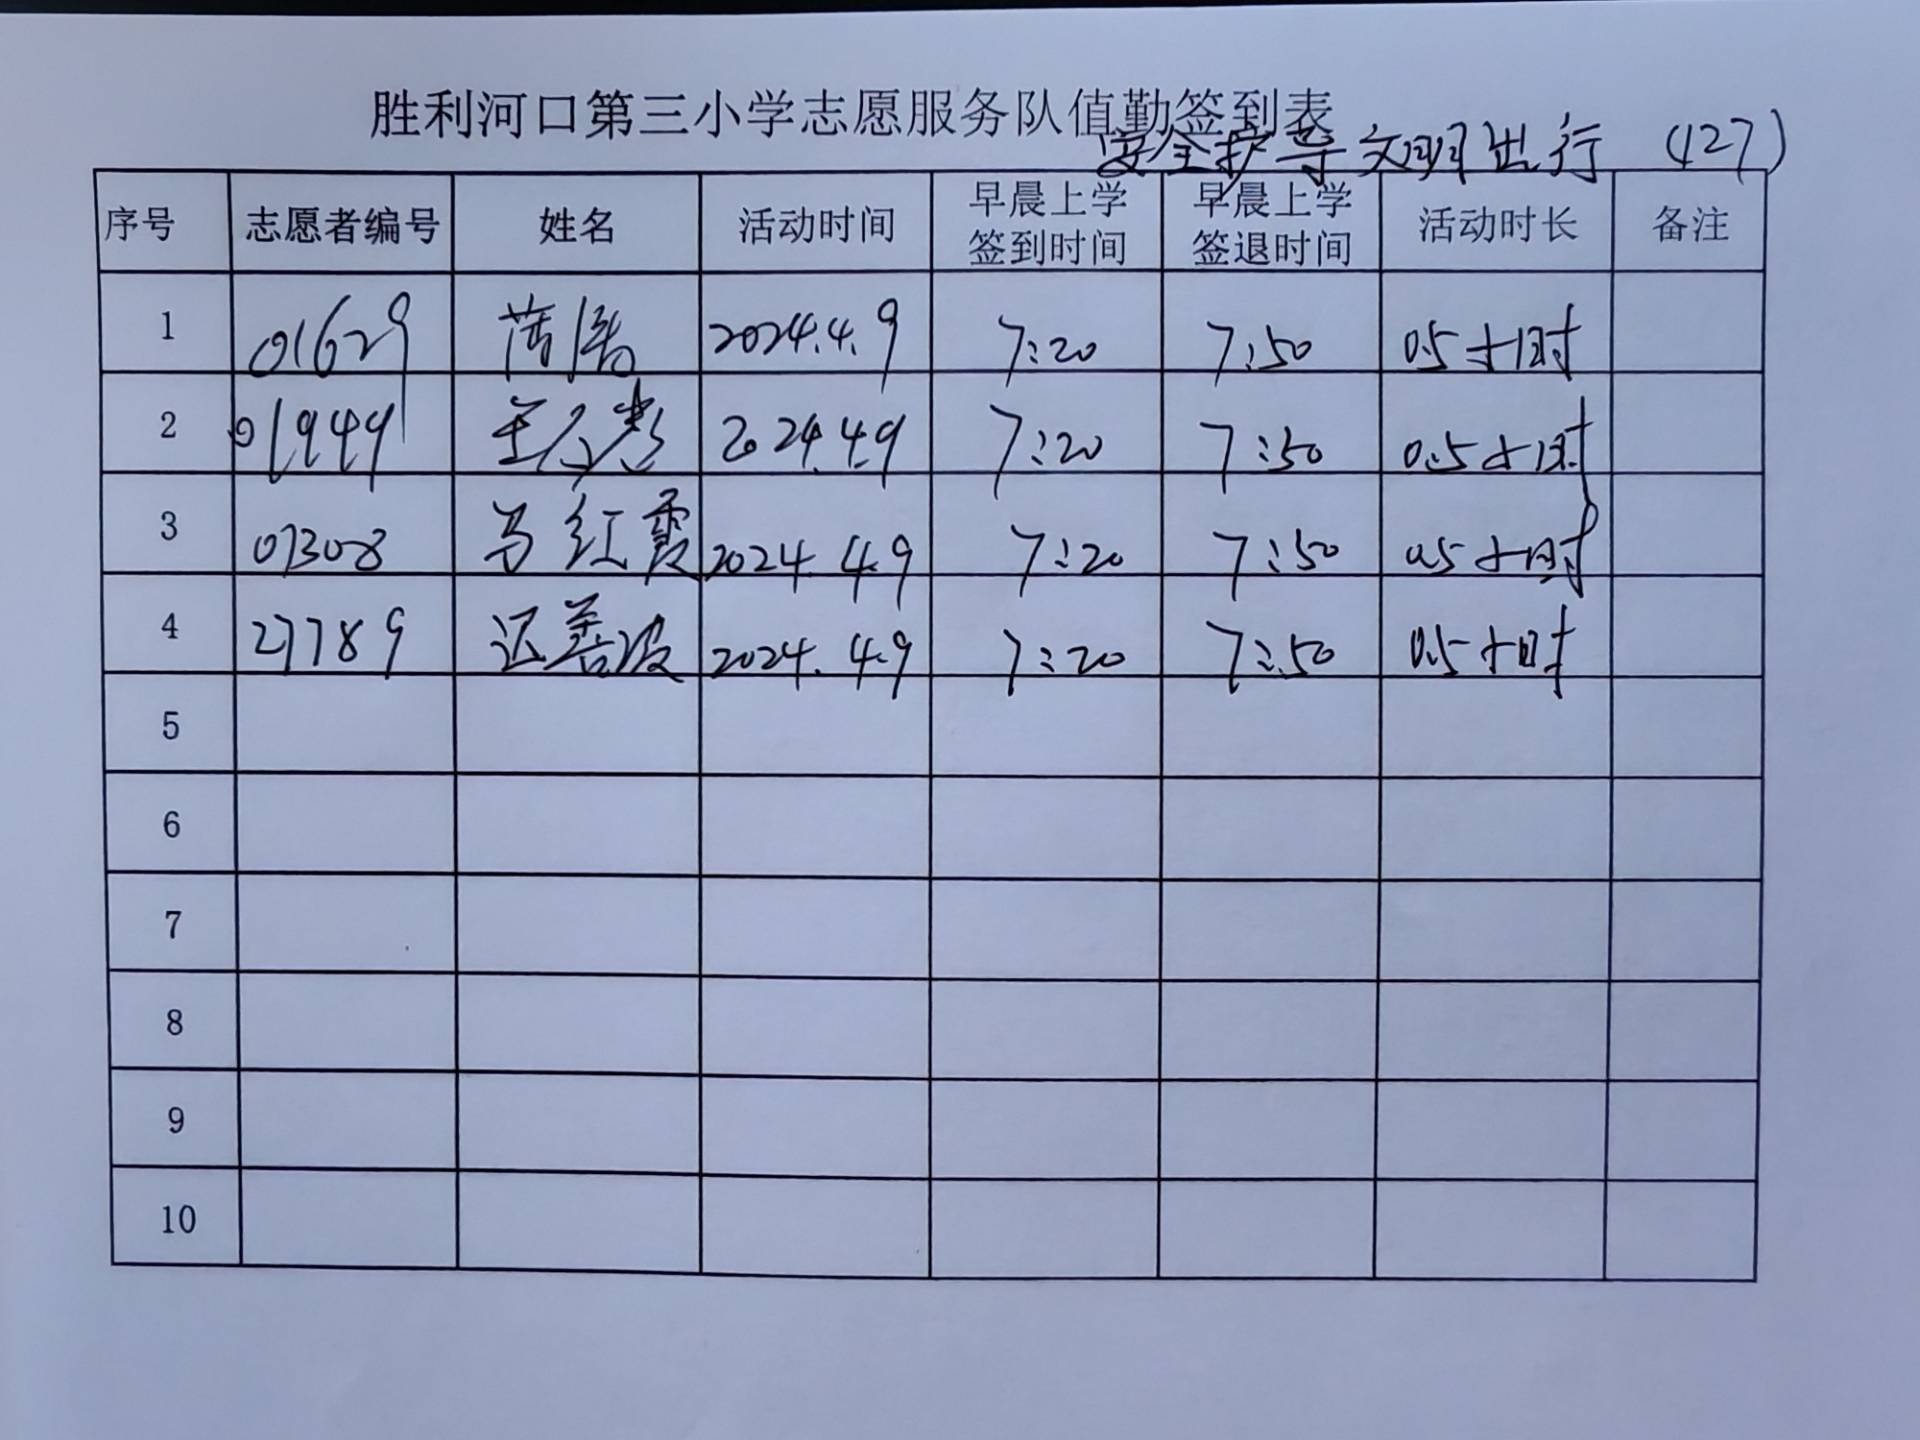 胜利河口第三小学志愿服务队值勤签到表
安全护导 文明出行 (127)
序号 志愿者编号 姓名 活动时间 早晨上学签到时间 早晨上学签退时间 活动时长 备注
1 01629 2024.4.9 7:20 7:50 0.5小时
2 01949 2024.4.9 7:20 7:50 0.5小时
3 07308 马红霞 2024.4.9 7:20 7:50 0.5小时
4 27789 善波 2024.4.9 7:20 7:50 0.5小时
5
6
7
8
9
10